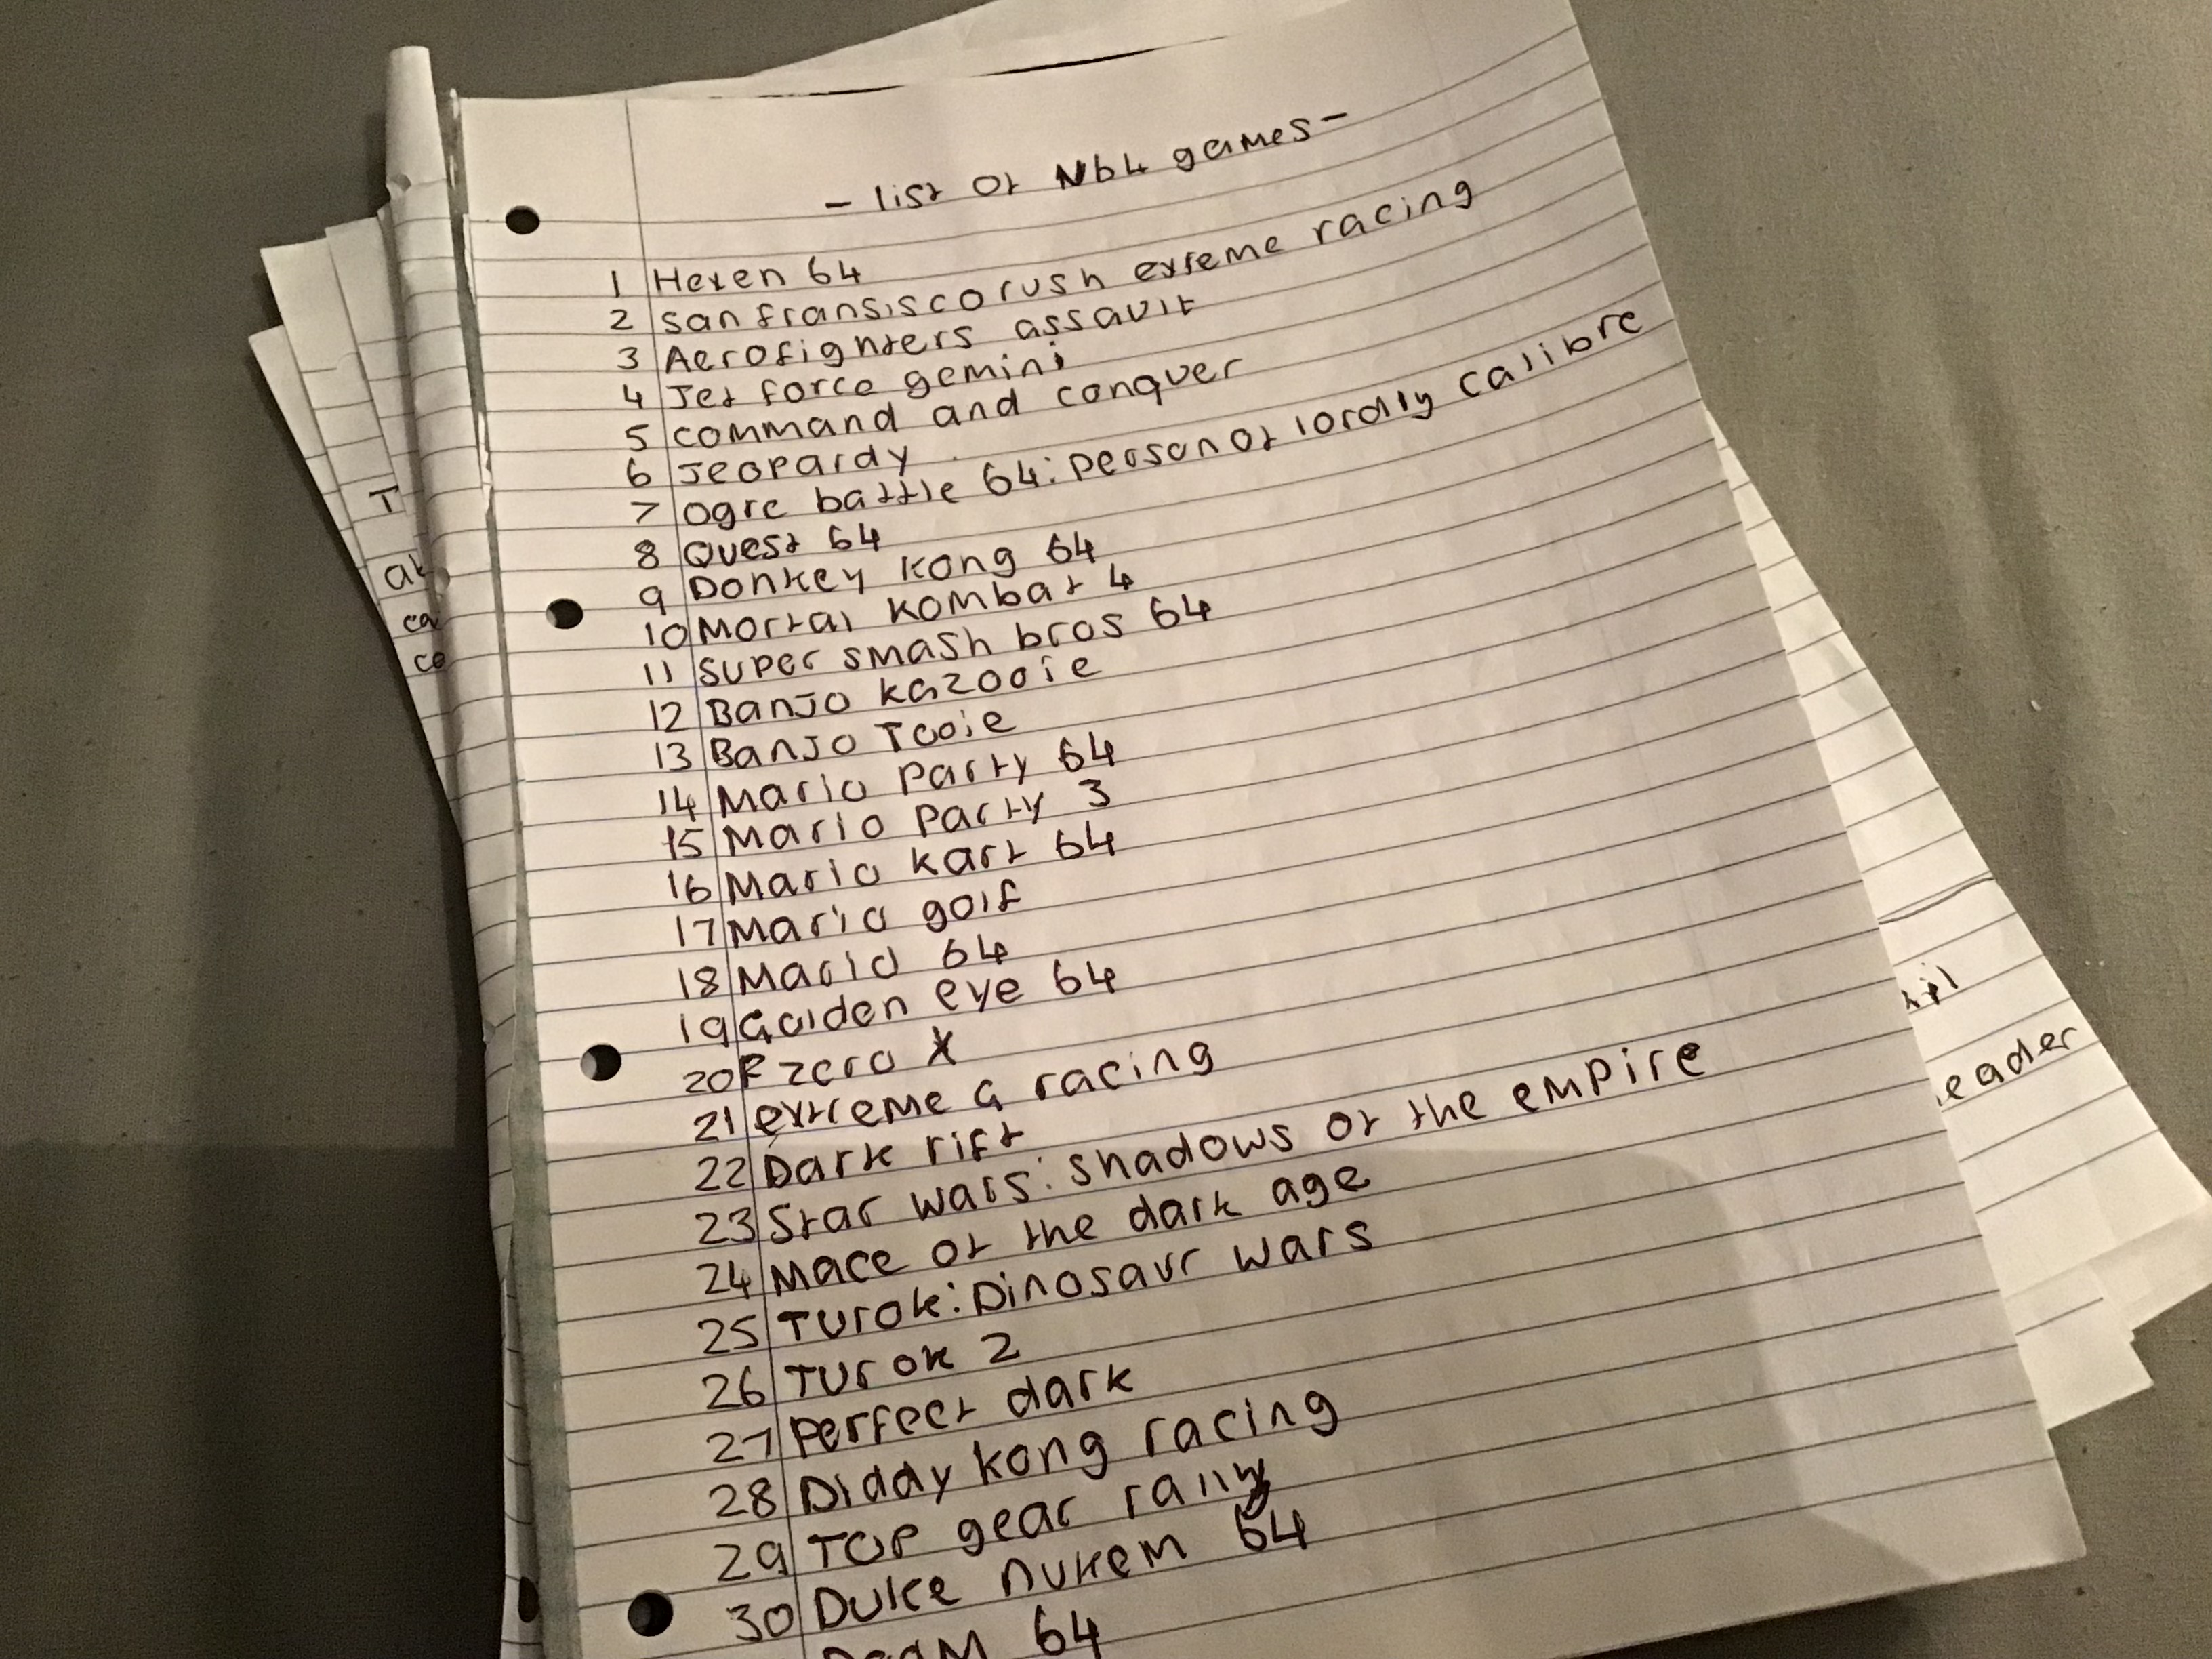 - list of N64 games -
1 Hexen 64
2 san fransisco rush exreme racing
3 Aerofighters assault
4 Jet force gemini
5 command and conquer
6 Jeopardy
7 ogre battle 64: person of lordly calibre
8 Quest 64
9 Donkey kong 64
10 Mortal kombat 4
11 super smash bros 64
12 Banjo kazooie
13 Banjo Tooie
14 Mario party 64
15 Mario party 3
16 Mario kart 64
17 Mario golf
18 Mario 64
19 Golden eye 64
20 F zero X
21 extreme G racing
22 Dark rift
23 Star wars: shadows of the empire
24 Mace of the dark age
25 Turok: Dinosaur wars
26 Turok 2
27 perfect dark
28 Diddy kong racing
29 Top gear rally
30 Duke nukem 64
Doom 64
T
ca
co
eader